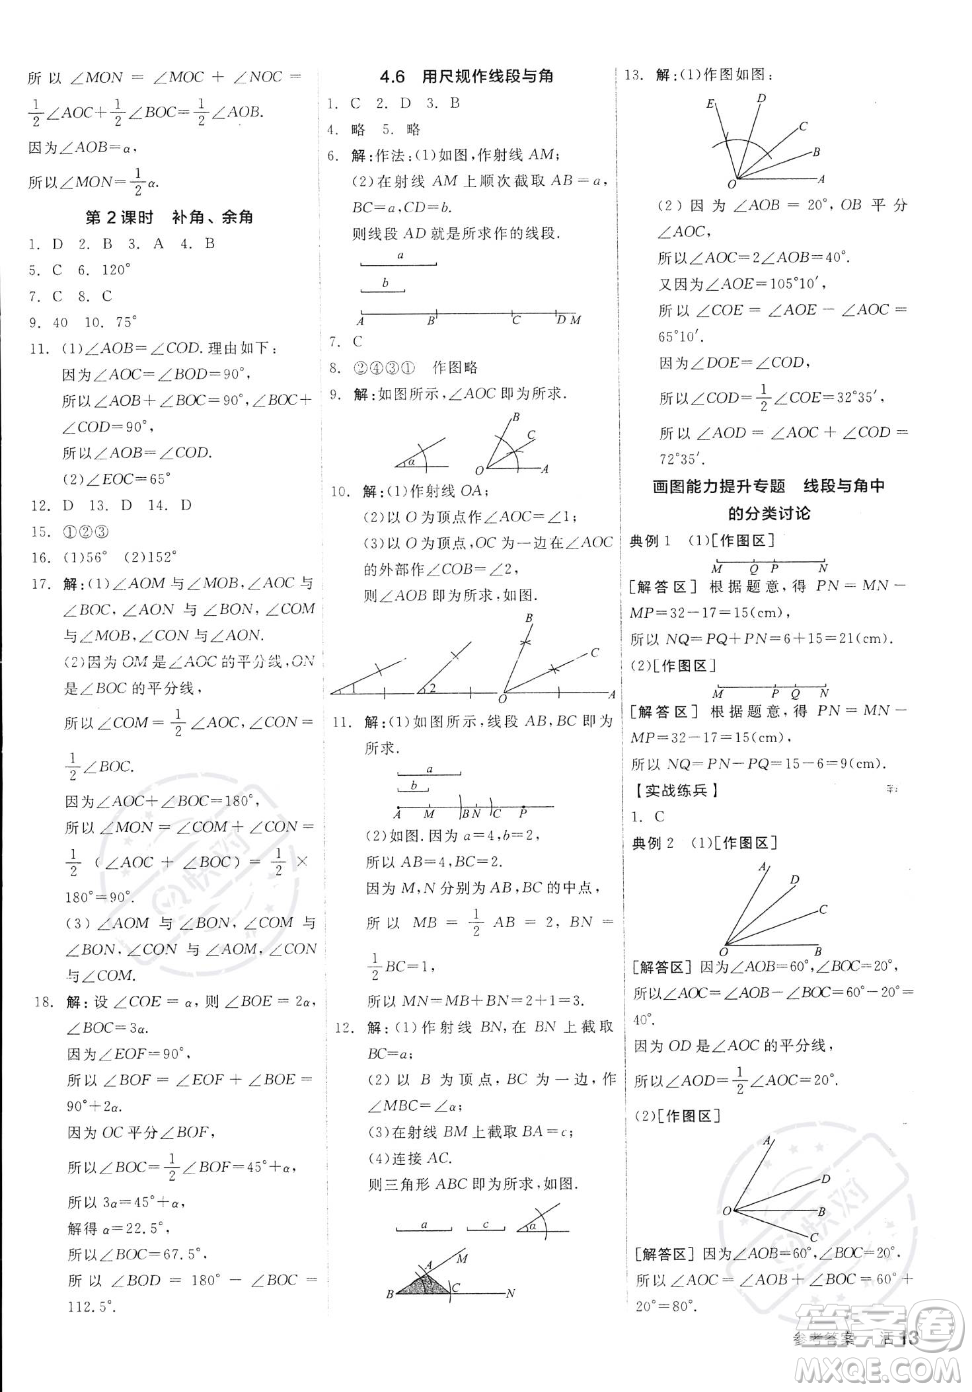 所以∠MON=∠MOC+∠NOC=
1/2∠AOC+1/2∠BOC=1/2∠AOB.
因为∠AOB=α,
所以∠MON=1/2α.
第2课时　补角、余角
1. D　2. B　3. A　4. B
5. C　6. 120°
7. C　8. C
9. 40　10. 75°
11. (1)∠AOB=∠COD.理由如下:
因为∠AOC=∠BOD=90°,
所以∠AOB+∠BOC=∠BOC+
∠COD=90°,
所以∠AOB=∠COD.
(2)∠EOC=65°
12. D　13. D　14. D
15. ①②③
16. (1)56°　(2)152°
17. 解:(1)∠AOM与∠MOB,∠AOC与
∠BOC,∠AON与∠BON,∠COM
与∠MOB,∠CON与∠AON.
(2)因为OM是∠AOC的平分线,ON
是∠BOC的平分线,
所以∠COM=1/2∠AOC,∠CON=
1/2∠BOC.
因为∠AOC+∠BOC=180°,
所以∠MON=∠COM+∠CON=
1/2(∠AOC+∠BOC)=1/2×
180°=90°.
(3)∠AOM与∠CON,∠AOM与
∠BON,∠CON与∠COM,∠BON
与∠COM.
18. 解:设∠COE=α,则∠BOE=2α,
∠BOC=3α.
因为∠EOF=90°,
所以∠BOF=∠EOF+∠BOE=
90°+2α.
因为OC平分∠BOF,
所以∠BOC=1/2∠BOF=45°+α,
所以3α=45°+α,
解得α=22.5°,
所以∠BOC=67.5°,
所以∠BOD=180°-∠BOC=
112.5°.
4.6　用尺规作线段与角
1. C　2. D　3. B
4. 略　5. 略
6. 解:作法:(1)如图,作射线AM;
(2)在射线AM上顺次截取AB=a,
BC=a,CD=b.
则线段AD就是所求作的线段.
a
b
A　B　C　D M
7. C
8. ②④③①　作图略
9. 解:如图所示,∠AOC即为所求.
α　B　C　O　A
10. 解:(1)作射线OA;
(2)以O为顶点作∠AOC=∠1;
(3)以O为顶点,OC为一边在∠AOC
的外部作∠COB=∠2,
则∠AOB即为所求,如图.
B　C　1　2　O　A
11. 解:(1)如图所示,线段AB,BC即为
所求.
a
b
A　M　BN　C　P
(2)如图.因为a=4,b=2,
所以AB=4,BC=2.
因为M,N分别为AB,BC的中点,
所以MB=1/2AB=2,BN=
1/2BC=1,
所以MN=MB+BN=2+1=3.
12. 解:(1)作射线BN,在BN上截取
BC=a;
(2)以B为顶点,BN为一边,作
∠MBC=∠α;
(3)在射线BM上截取BA=c;
(4)连接AC.
则三角形ABC即为所求,如图.
a　c　α
A　M　B　C　N
13. 解:(1)作图如图:
E　D　C　B　O　A
(2)因为∠AOB=20°,OB平分
∠AOC,
所以∠AOC=2∠AOB=40°.
又因为∠AOE=105°10′,
所以∠COE=∠AOE-∠AOC=
65°10′.
因为∠COD=∠DOE,
所以∠COD=1/2∠COE=32°35′,
所以∠AOD=∠AOC+∠COD=
72°35′.
画图能力提升专题　线段与角中
的分类讨论
典例1　(1)[作图区]
M　Q　P　N
[解答区]　根据题意,得PN=MN-
MP=32-17=15(cm),
所以NQ=PQ+PN=6+15=21(cm).
(2)[作图区]
M　P　Q　N
[解答区]　根据题意,得PN=MN-
MP=32-17=15(cm),
所以NQ=PN-PQ=15-6=9(cm).
【实战练兵】
1. C
典例2　(1)[作图区]
A　D　C　O　B
[解答区]　因为∠AOB=60°,∠BOC=20°,
所以∠AOC=∠AOB-∠BOC=60°-20°=
40°.
因为OD是∠AOC的平分线,
所以∠AOD=1/2∠AOC=20°.
(2)[作图区]
A　D　B　O　C
[解答区]　因为∠AOB=60°,∠BOC=20°.
所以∠AOC=∠AOB+∠BOC=60°+
20°=80°.
参考答案　活13
答案圈
MXQE.COM